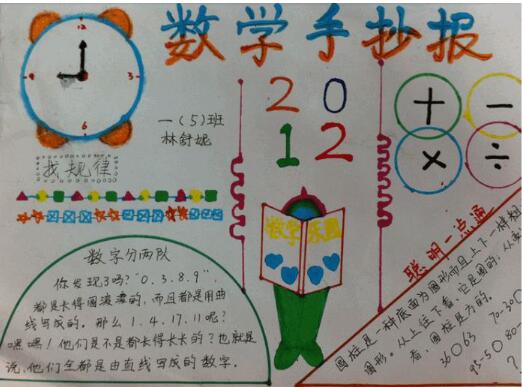 数学手抄报
12
9
3
6
一(5)班
林舒妮
20
12
+
-
×
÷
找规律
数学乐园
数字分两队
你发现了吗?"0.3.8.9",
都是长得圆滚滚的,而且都是用曲
线写成的。那么1.4.17.11呢?
嘿嘿!他们是不是都长得长长的?也就是
说,他们全都是由直线写成的数字。
聪明一点通
圆柱是一种底面为圆形而且上下一样粗
图形。从上往下看,它是圆的;从
看,圆柱是方的。
36○63
70-30○
95-5○80